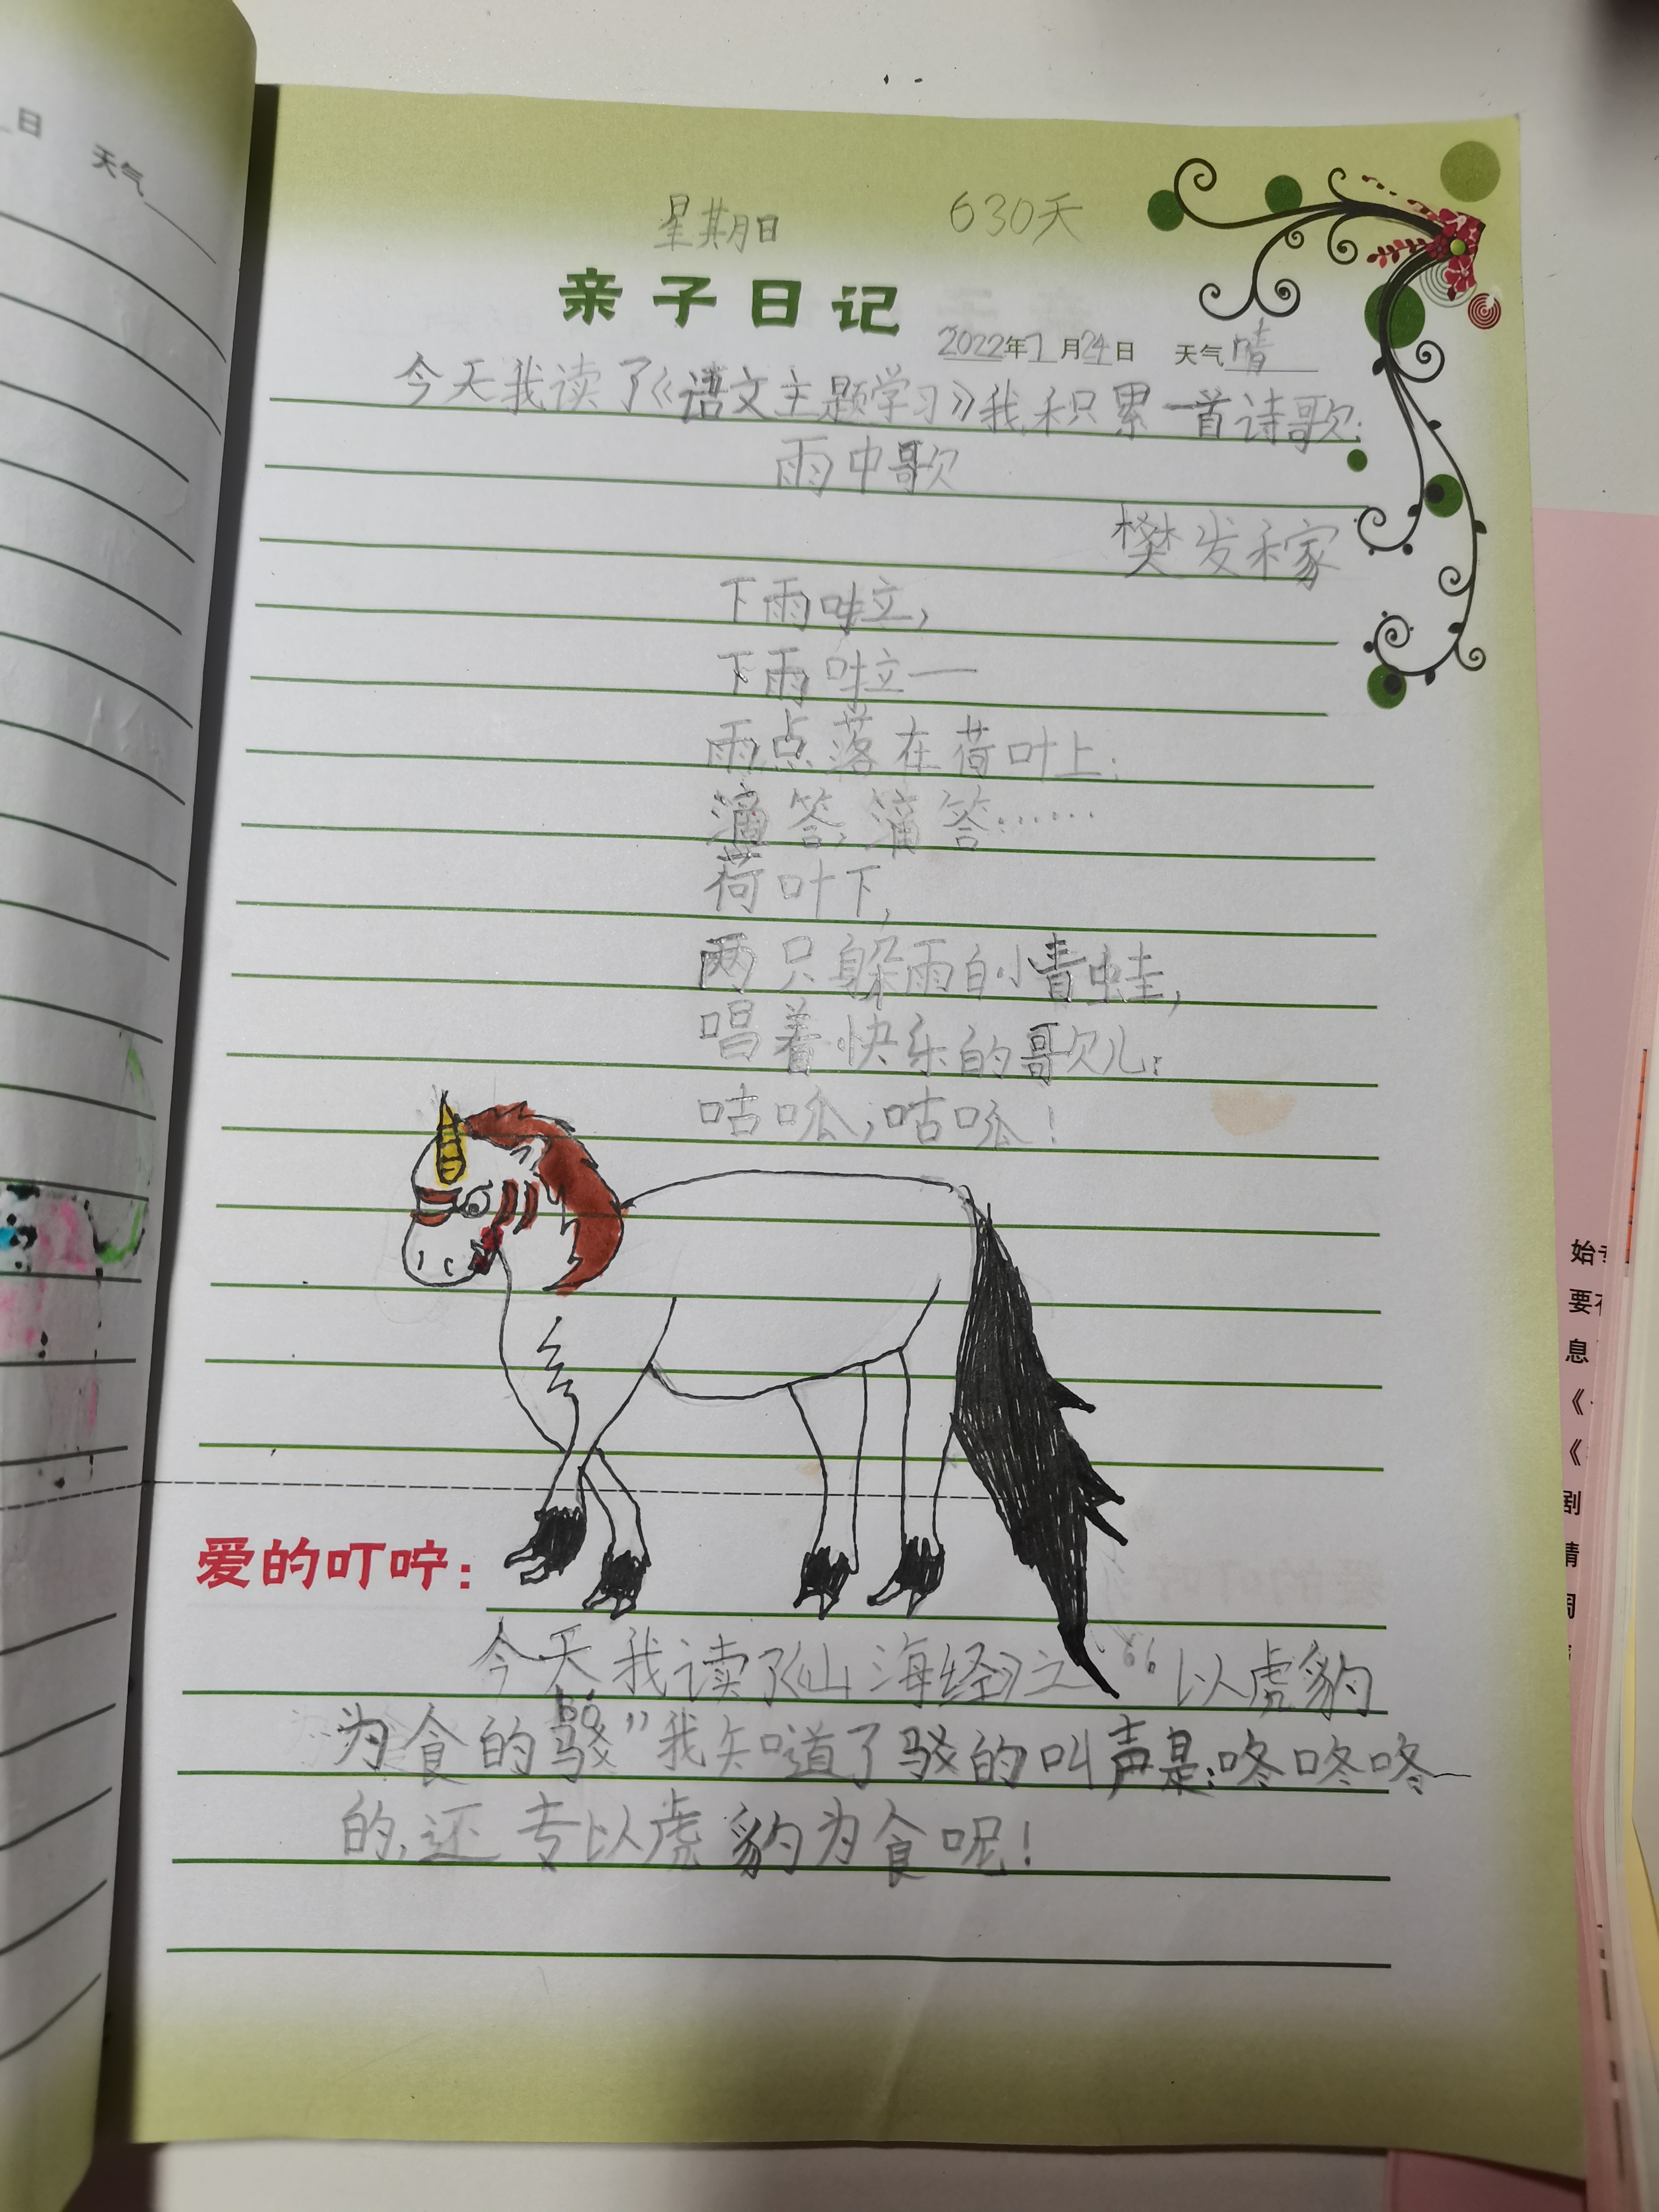 日
天气
星期日 630天
亲子日记
2022年7月24日 天气晴
今天我读了《语文主题学习》我积累一首诗歌:
雨中歌
樊发稼
下雨啦,
下雨啦——
雨点落在荷叶上:
滴答,滴答……
荷叶下,
两只躲雨的小青蛙,
唱着快乐的歌儿:
咕呱,咕呱!
爱的叮咛:
今天我读了《山海经》之“以虎豹
bó
为食的驳”我知道了驳的叫声是:咚咚咚
的,还专以虎豹为食呢!
始
要
息
《
《
剧
情